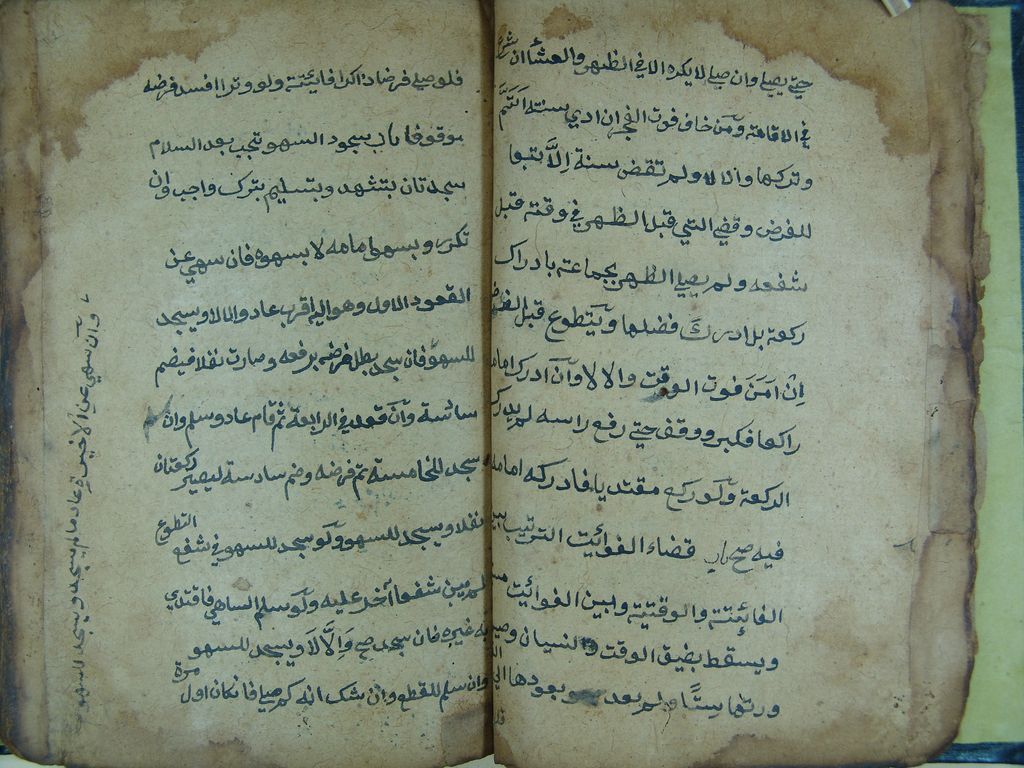 حتي يصلي وان صلي لا يكره الا في الظهر والعشاء ان شرع
في الاقامة ومن خاف فوت الفجر ان ادي سنته ائتم
وتركها والا لا ولم تقض سنة إلا تبعا
للفرض وقضي التي قبل الظهر في وقته قبل
شفعه ولم يصلي الظهر بجماعة بادراك
ركعة بل ادرك فضلها ويتطوع قبل الفرض
ان امن فوت الوقت والا لا وان ادرك امامه
راكعا فكبر ووقف حتي رفع راسه لم يدرك
الركعة ولو ركع مقتد يا فادركه امامه
فيه صح باب قضاء الفوائت الترتيب بين
الفائتة والوقتية وبين الفوائت
ويسقط بضيق الوقت والنسيان وصير
ورتها ستا ولم يعد بعودها الي
فلو صلي فرضا ذاكرا فائتة ولو وترا افسد فرضه
موقوفا باب سجود السهو تجب بعد السلام
سجدتان بتشهد وبتسليم بترك واجب وان
تكرر وبسهو امامه لا بسهوه فان سهي عن
القعود الاول وهو اليه اقرب عاد والا لا ويسجد
للسهو فان سجد بطل فرضه برفعه وصارت نفلا فيضم
سادسة وان قعد في الرابعة ثم قام عاد وسلم وان
سجد للخامسة تم فرضه وضم سادسة ليصير ركعتان
نفلا ويسجد للسهو ولو سجد للسهو في شفع التطوع
لم يبن شفعا آخر عليه ولو سلم الساهي فاقتدي
به غيره فان سجد صح وإلا لا ويسجد للسهو
وان سلم للقطع وان شك انه كم صلي فان كان اول مرة
وان سهي عن الاخيرة عاد مالم يسجد ويسجد للسهو